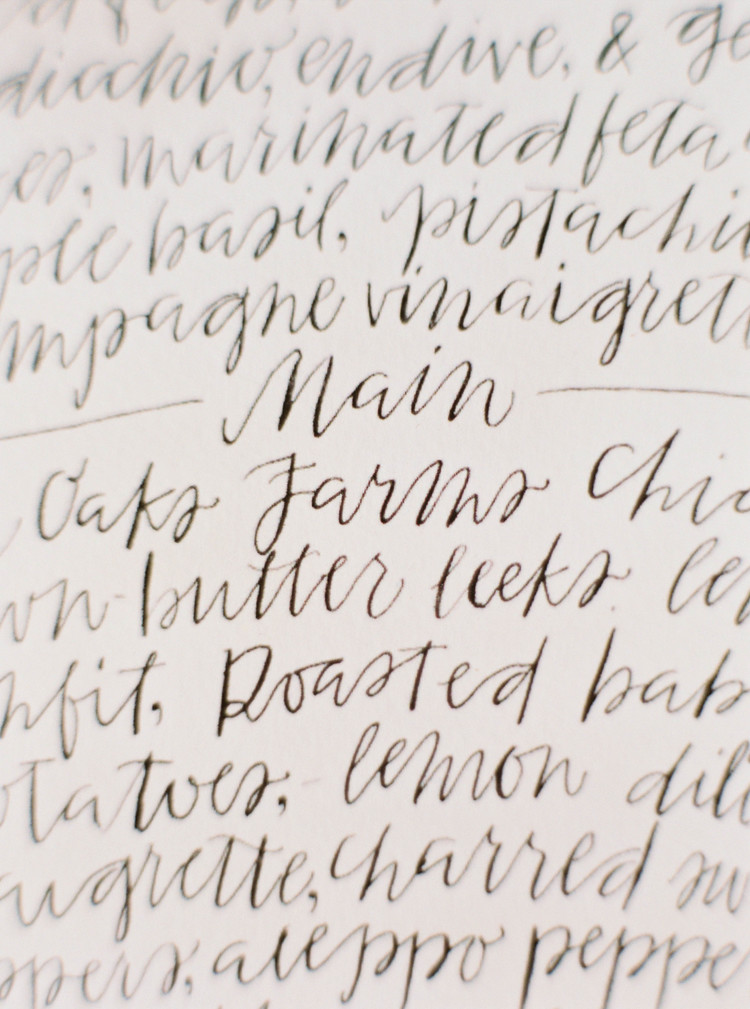 dicchio, endive, & ge
es, marinated feta
ple basil, pistachi
mpagne vinaigrett
Main
Oaks Farms Chic
wn-butter leeks. le
nfit, Roasted bab
otatoes, lemon dill
aigrette, charred sw
ppers, aleppo peppe